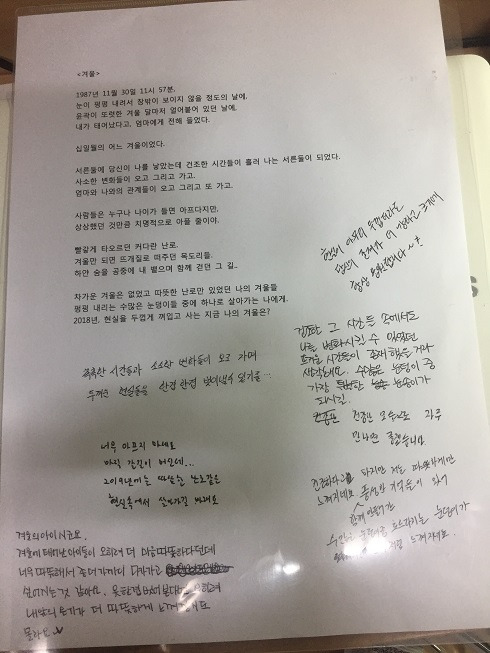 <겨울>
1987년 11월 30일 11시 57분.
눈이 펑펑 내려서 창밖이 보이지 않을 정도의 날에,
윤곽이 또렷한 겨울 달마저 얼어붙어 있던 날에,
내가 태어났다고, 엄마에게 전해 들었다.
십일월의 어느 겨울이었다.
서른둘에 당신이 나를 낳았는데 건조한 시간들이 흘러 나는 서른둘이 되었다.
사소한 변화들이 오고 그리고 가고.
엄마와 나와의 관계들이 오고 그리고 또 가고.
사람들은 누구나 나이가 들면 아프다지만,
상상했던 것만큼 지명적으로 아플 줄이야.
빨갛게 타오르던 커다란 난로.
겨울만 되면 뜨개질로 떠주던 목도리들.
하얀 숨을 공중에 내 뱉으며 함께 걷던 그 길..
차가운 겨울은 없었고 따뜻한 난로만 있었던 나의 겨울들
펑펑 내리는 수많은 눈덩이들 중에 하나로 살아가는 나에게.
2018년, 현실을 두껍게 껴입고 사는 지금 나의 겨울은?
현실이 아무리 두껍더라도
당신의 존재가 더
항상 응원합니다~?
건조한 그 시간들 속에서도
나를 변화시킬 수 있었던
뜨거운 시간들이 존재했을 거라
생각해요. 수많은 눈덩이 중
가장 특별한 눈송이가
되시길.
건조한 자주
만나면 좋겠습니다
촉촉한 시간들과 소소한 변화들이 오고 가며
두꺼운 현실들을 한겹 한겹 벗어낼수 있기를...
너무 아프지 마세요
아직 갈길이 머언데...
2019년에는 따뜻한 난로같은
현실속에서 살아가길 바래요
건조하다.. 하지만 저는 따뜻하게만
느껴지네요. 풍성한 기억들이 있어
함께
수많은 눈덩이가
느껴지세요.
겨울의 아이시군요.
겨울에 태어난 아이들이 오히려 더 마음 따뜻하다던데
너무 따뜻해서 좀 더 가까이 다가가고
싶어지는것 같아요. 옷 한겹 벗어보다
내 앞의 온기가 더 따뜻하게 느껴
몰라요